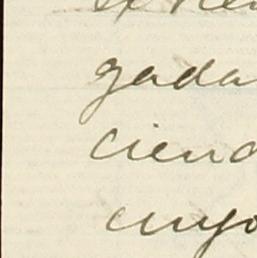 gada
cienc
cuyo